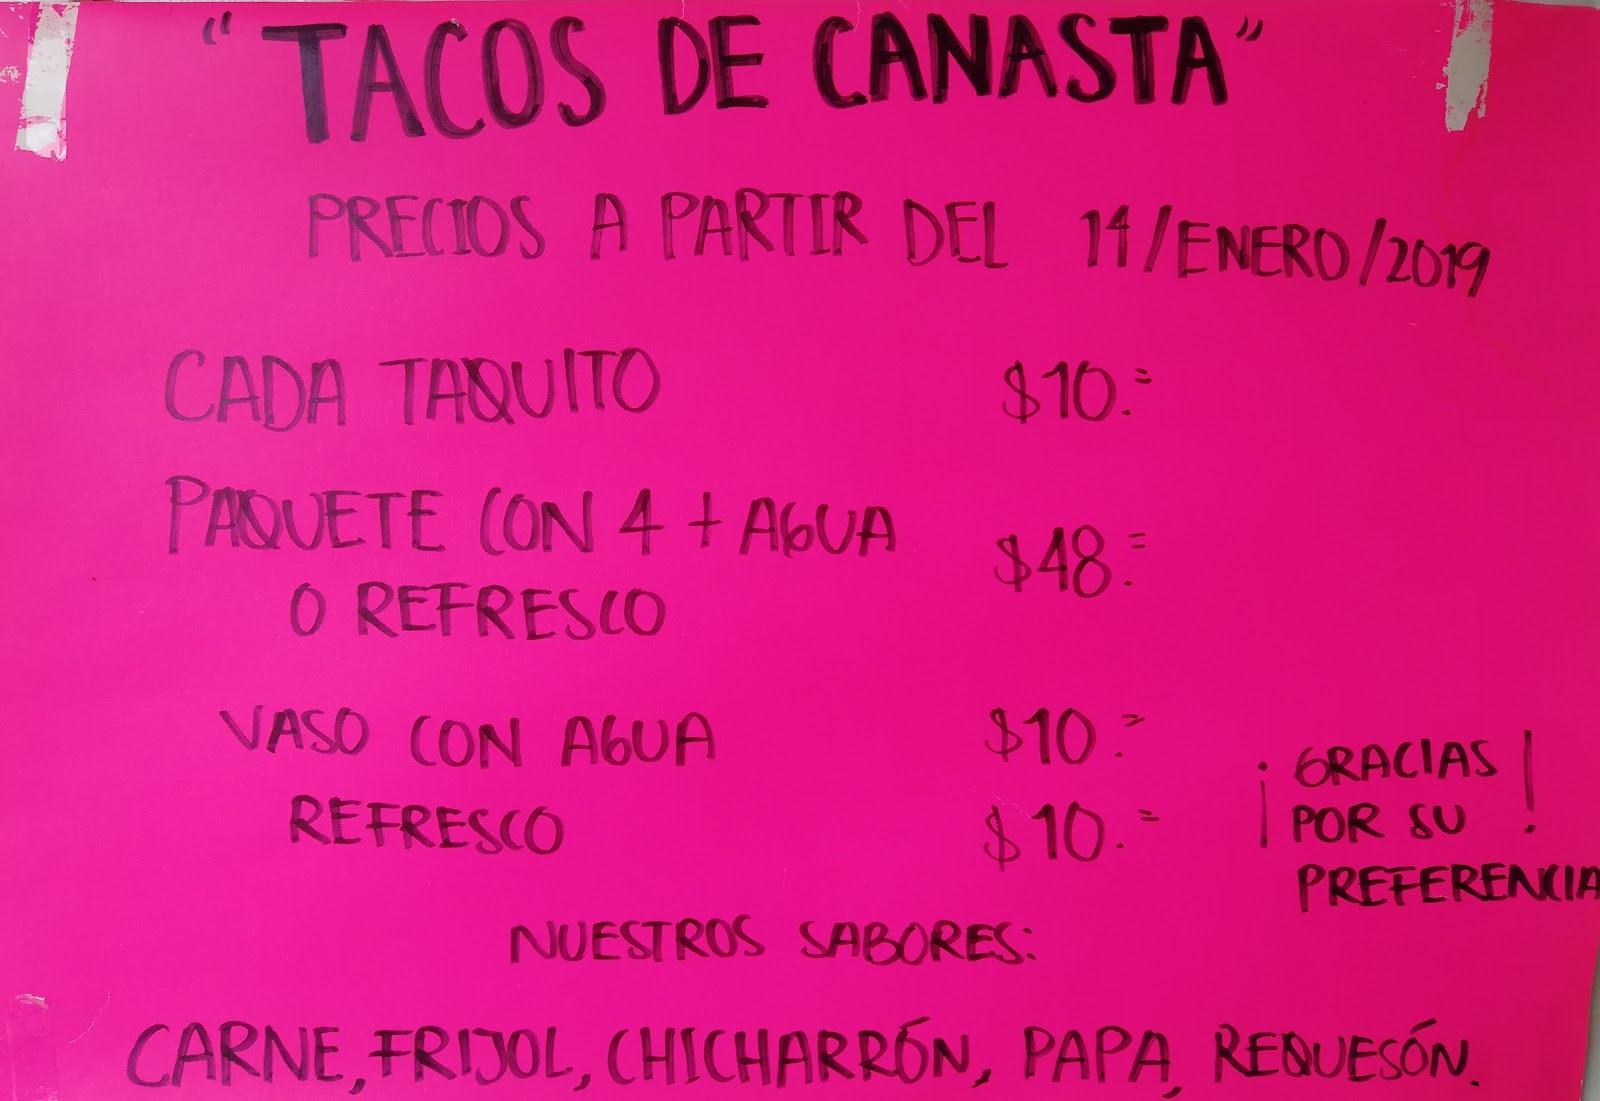 "TACOS DE CANASTA"
PRECIOS A PARTIR DEL 14/ENERO/2019
CADA TAQUITO $10.=
PAQUETE CON 4 + AGUA $48.=
O REFRESCO
VASO CON AGUA $10.=
REFRESCO $10.=
¡GRACIAS!
POR SU
PREFERENCIA
NUESTROS SABORES:
CARNE, FRIJOL, CHICHARRÓN, PAPA, REQUESÓN.